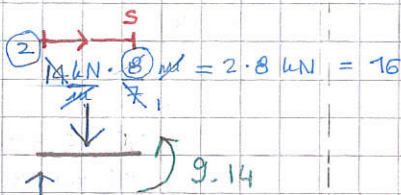 S
② 14 kN/m · 8 m / 7 1 = 2·8 kN = 16
9.14